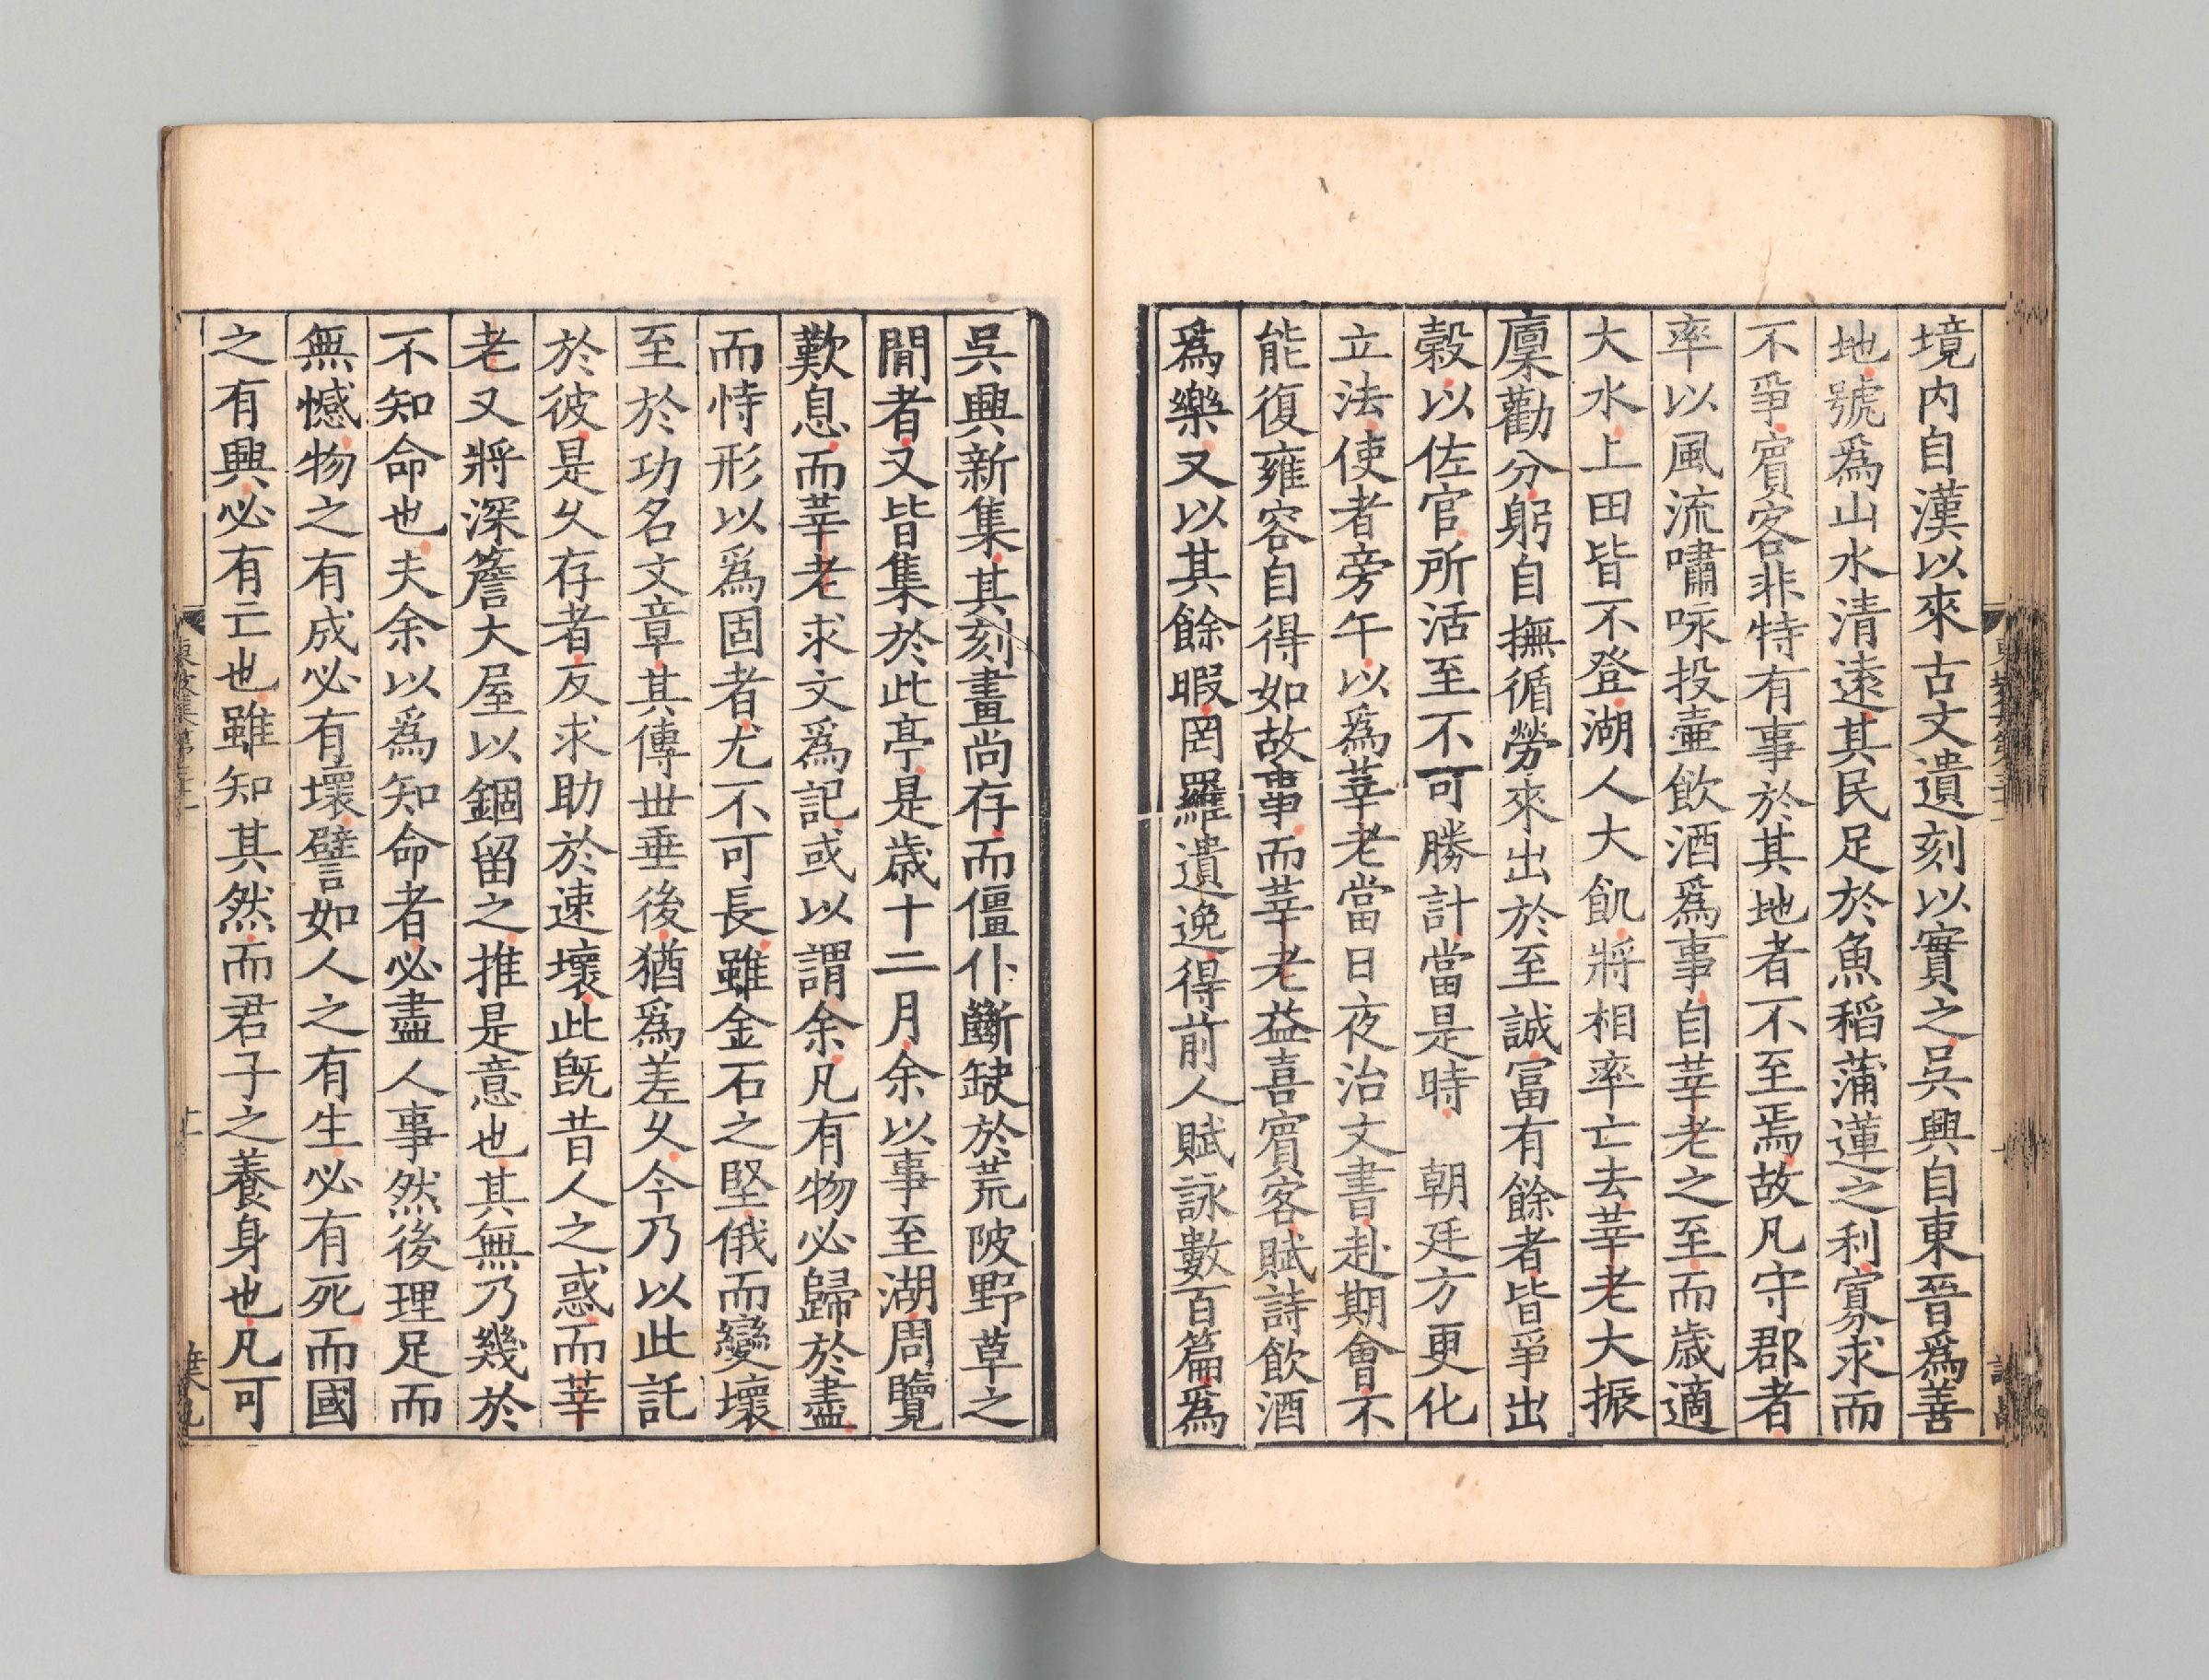 境内自漢以來古文遺刻以實之吳興自東晉爲善
地號爲山水清遠其民足於魚稻蒲蓮之利寡求而
不爭賓客非特有事於其地者不至焉故凡守郡者
率以風流嘯咏投壷飲酒爲事自莘老之至而歲適
大水上田皆不登湖人大飢將相率亡去莘老大振
廩勸分躬自撫循勞來出於至誠富有餘者皆爭出
穀以佐官所活至不可勝計當是時　朝廷方更化
立法使者旁午以爲莘老當日夜治文書赴期會不
能復雍容自得如故事而莘老益喜賓客賦詩飲酒
爲樂又以其餘暇罔羅遺逸得前人賦詠數百篇爲
吳興新集其刻畫尚存而僵仆斷缺於荒陂野草之
閒者又皆集於此亭是歲十二月余以事至湖周覽
歎息而莘老求文爲記或以謂余凡有物必歸於盡
而恃形以爲固者尤不可長雖金石之堅俄而變壞
至於功名文章其傳世垂後猶爲差久今乃以此託
於彼是久存者反求助於速壞此旣昔人之惑而莘
老又將深簷大屋以錮留之推是意也其無乃幾於
不知命也夫余以爲知命者必盡人事然後理足而
無憾物之有成必有壞譬如人之有生必有死而國
之有興必有亡也雖知其然而君子之養身也凡可